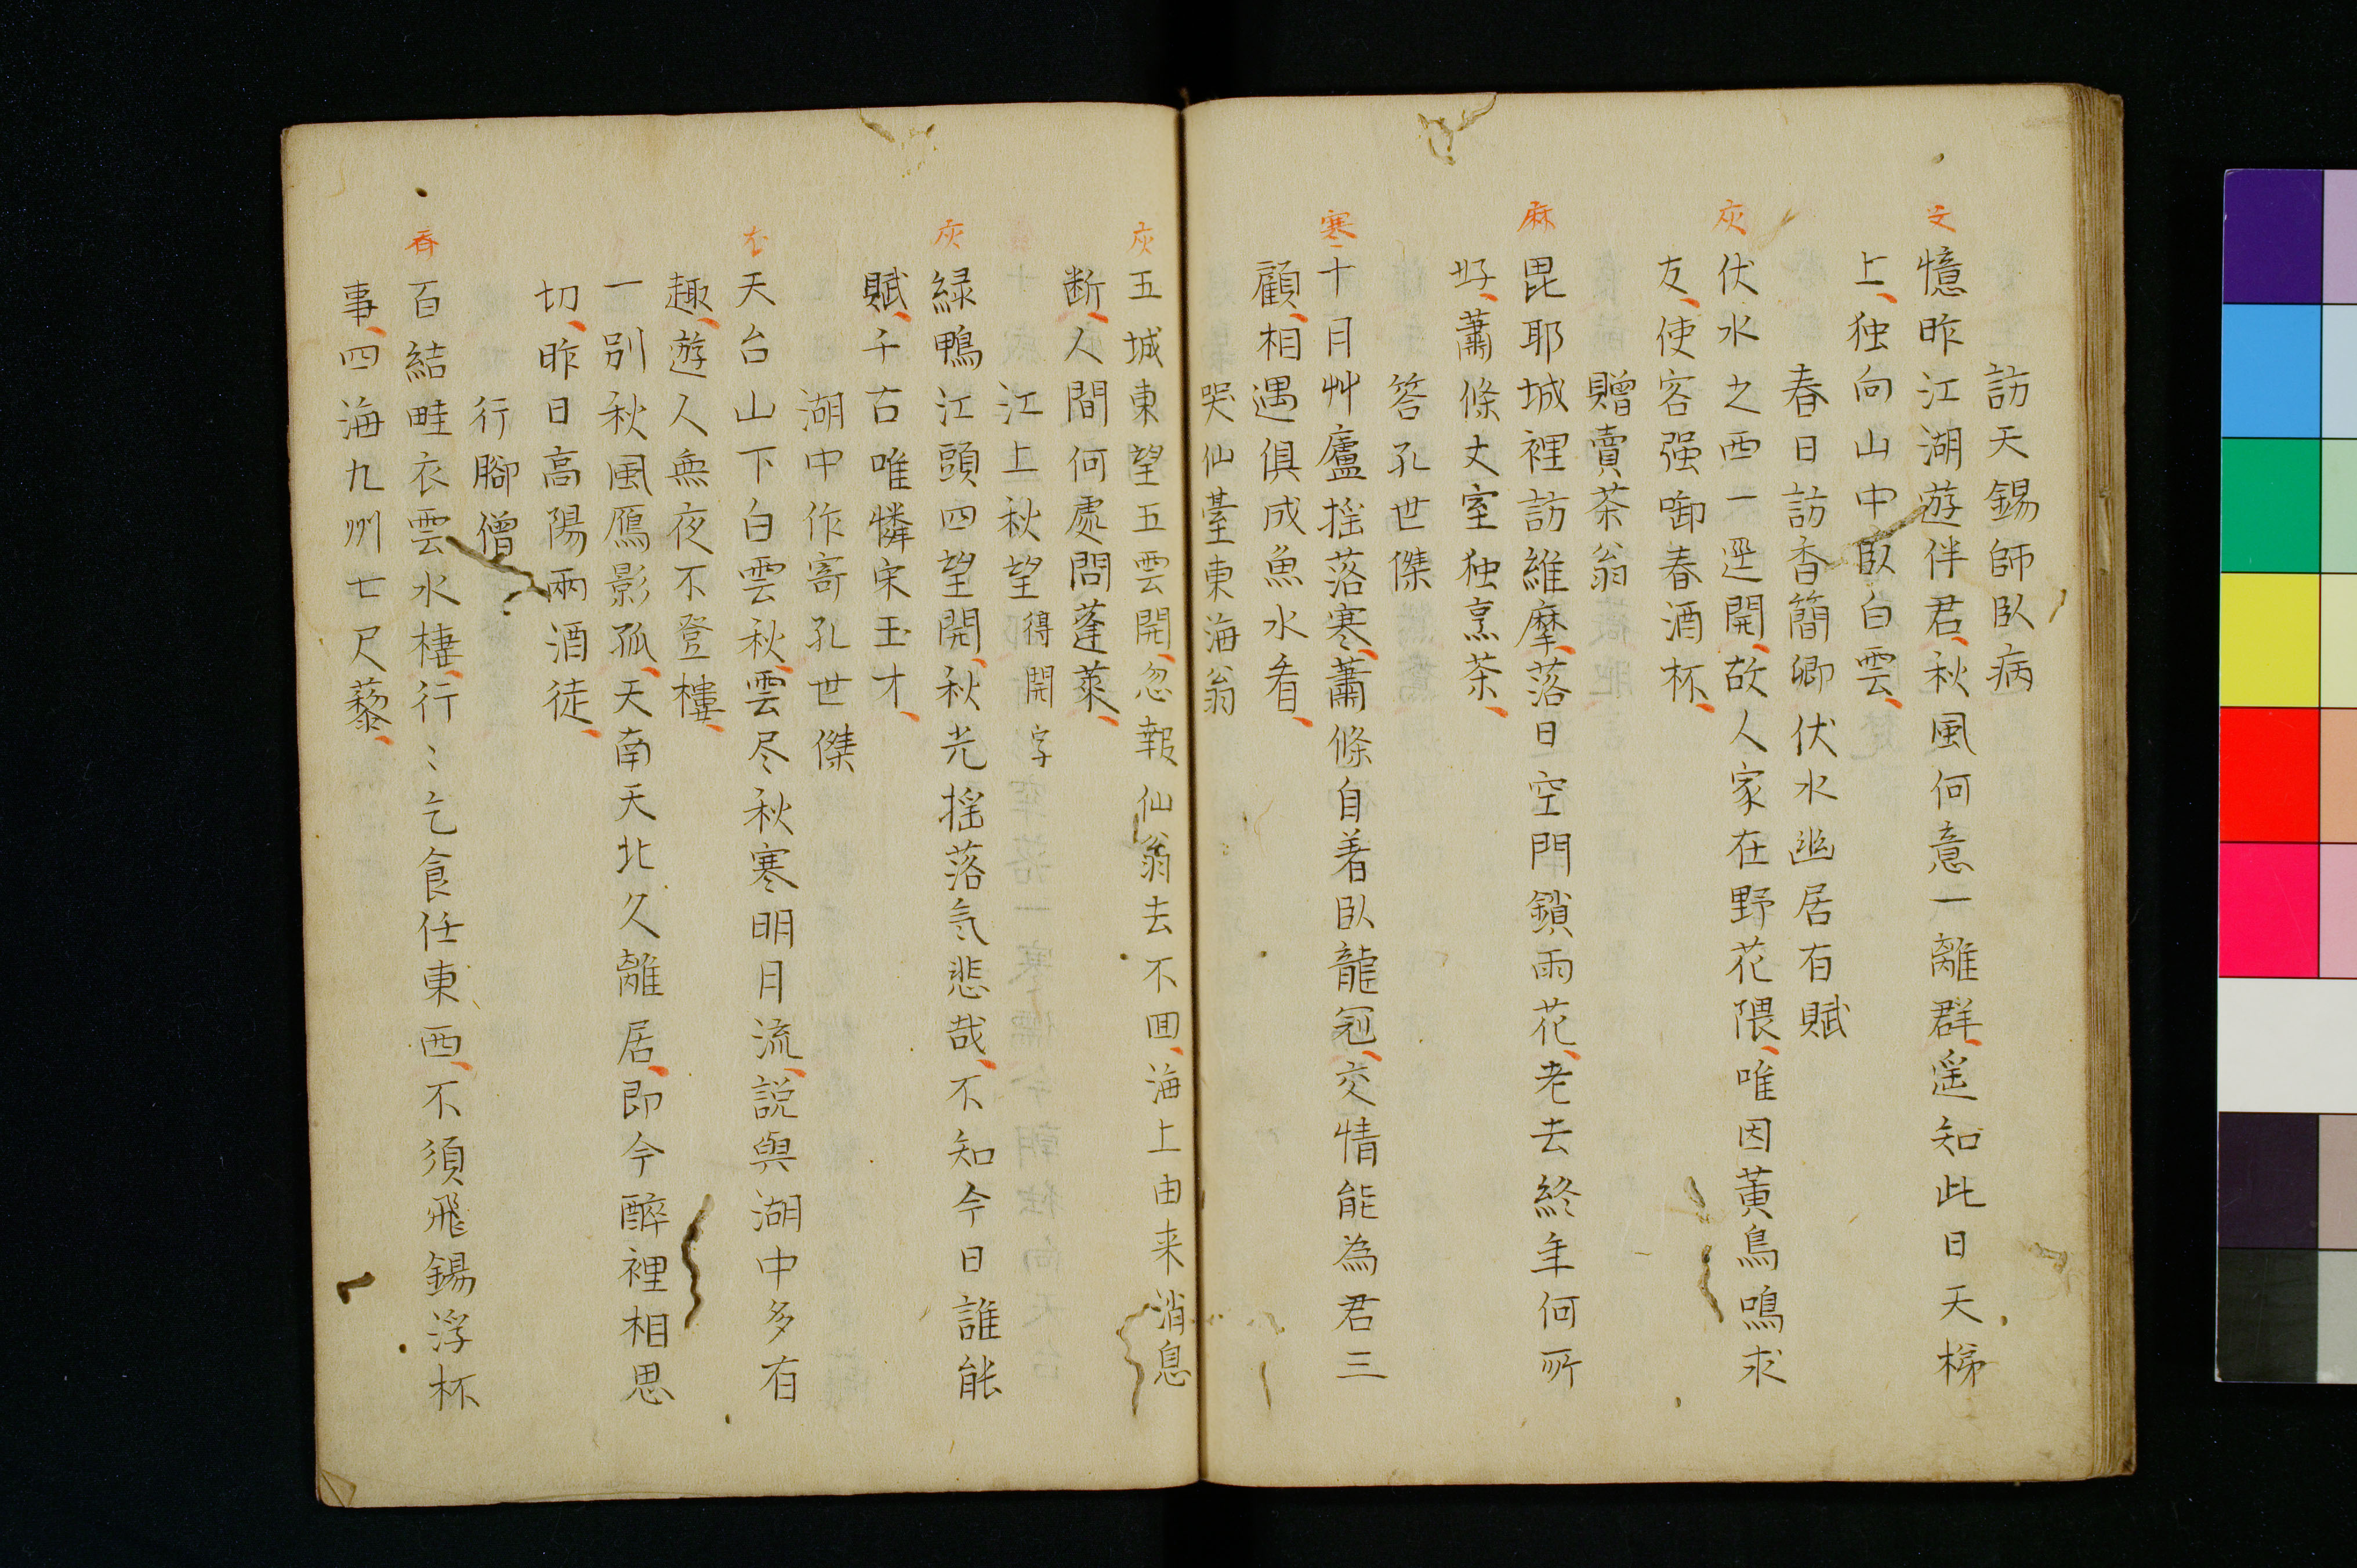 訪天錫師臥病
文 憶昨江湖遊伴君、秋風何意一離群、遥知此日天梯
上、独向山中臥白雲、
春日訪香簡卿伏水幽居有賦
灰 伏水之西一逕開、故人家在野花隈、唯因黄鳥鳴求
友、使客强啣春酒杯、
贈賣茶翁
麻 毘耶城裡訪維摩、落日空門鎖雨花、老去終年何所
好、蕭條丈室独烹茶、
答孔世傑
寒 十月艸廬揺落寒、蕭條自着臥龍冠、交情能為君三
顧、相遇俱成魚水看、
哭仙臺東海翁
灰 五城東望五雲開、忽報仙翁去不回、海上由来消息
断、人間何處問蓬萊、
江上秋望 得開字
灰 緑鴨江頭四望開、秋光揺落氣悲哉、不知今日誰能
賦、千古唯憐宋玉才、
湖中作寄孔世傑
天台山下白雲秋、雲尽秋寒明月流、説與湖中多有
趣、遊人無夜不登樓、
一別秋風鴈影孤、天南天北久離居、即今醉裡相思
切、昨日高陽兩酒徒、
行腳僧
百結畦衣雲水棲、行〻乞食任東西、不須飛錫浮杯
事、四海九州七尺藜、